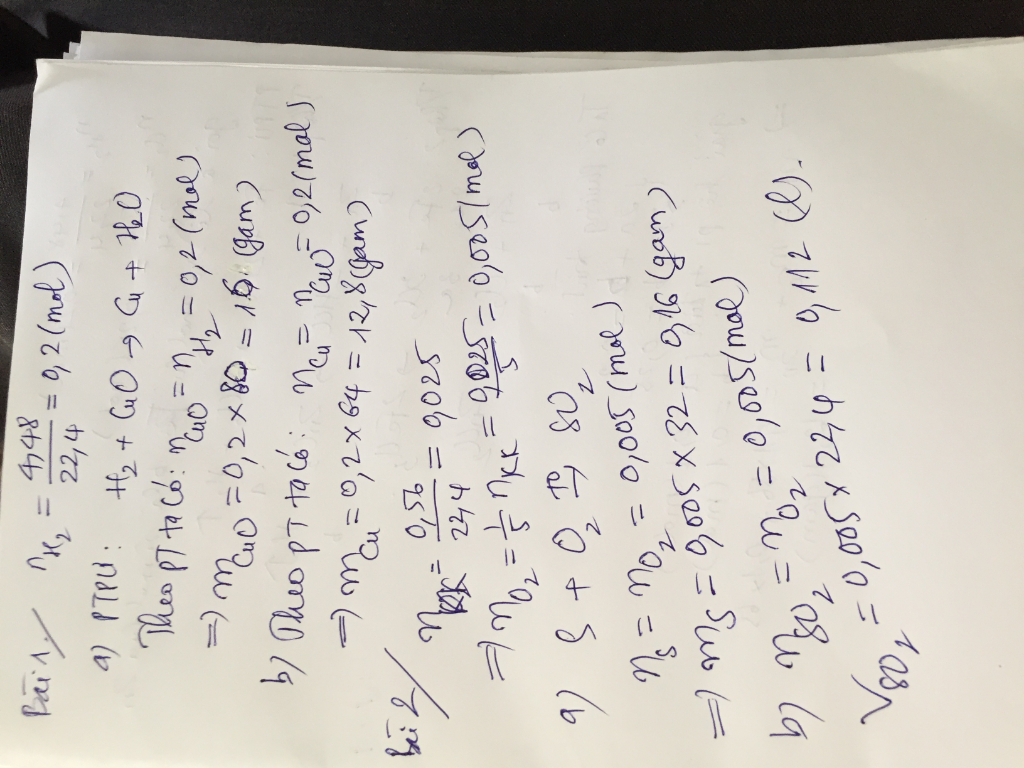 Bài 1/ nH2 = 4,48/22,4 = 0,2 (mol)
a) PTPU: H2 + CuO → Cu + H2O
Theo PT ta có: nCuO = nH2 = 0,2 (mol)
=> mCuO = 0,2 × 80 = 16 (gam)
b) Theo PT ta có: nCu = nCuO = 0,2 (mol)
=> mCu = 0,2 × 64 = 12,8 (gam)
Bài 2/
nKK = 0,56/22,4 = 0,025
=> nO2 = 1/5 nKK = 0,025/5 = 0,005 (mol)
a) S + O2 t° → SO2
nS = nO2 = 0,005 (mol)
=> mS = 0,005 × 32 = 0,16 (gam)
b) nSO2 = nO2 = 0,005 (mol)
VSO2 = 0,005 × 22,4 = 0,112 (l).